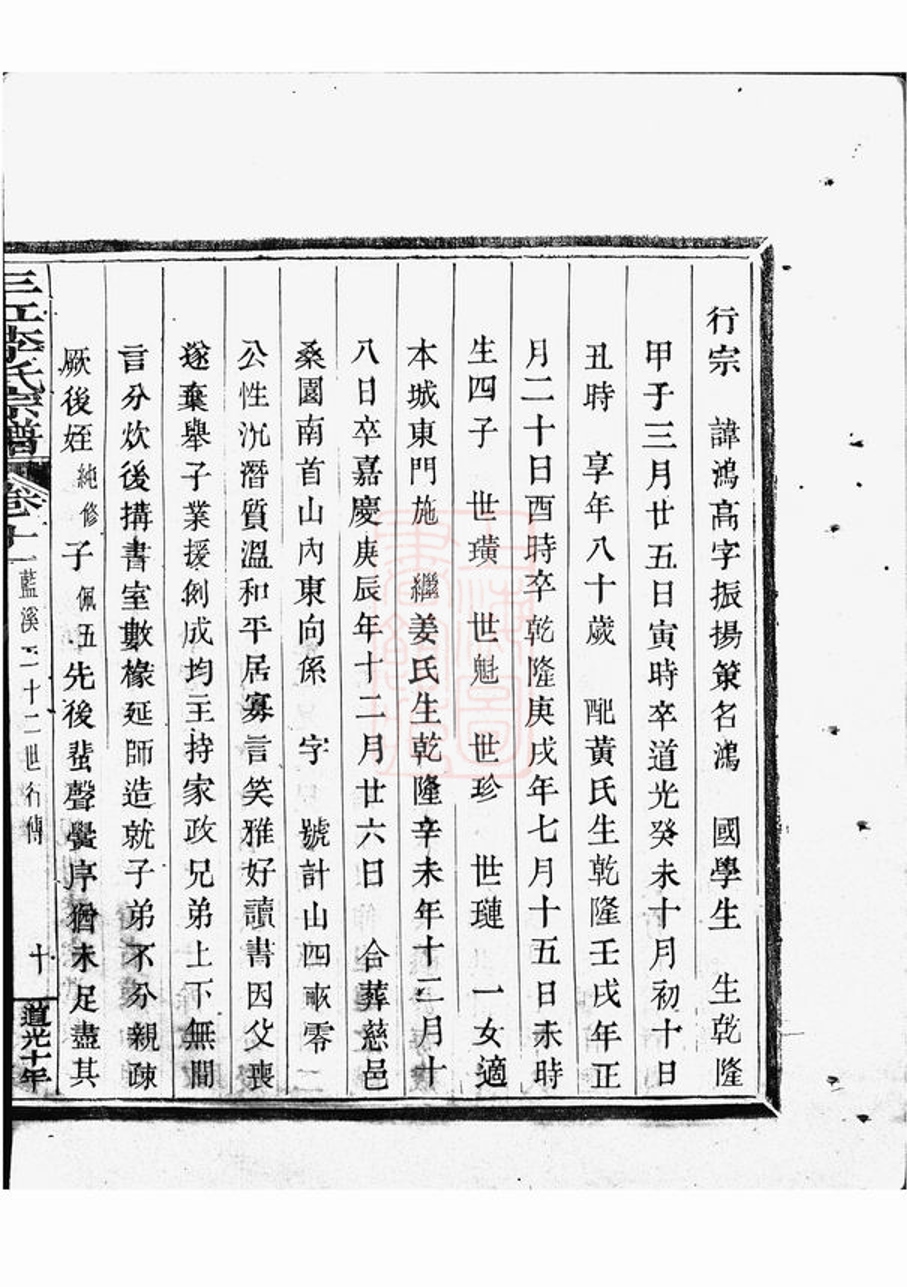 行宗 諱鴻高字振揚策名鴻 國學生 生乾隆
甲子三月廿五日寅時卒道光癸未十月初十日
丑時 享年八十歲 配黃氏生乾隆壬戌年正
月二十日酉時卒乾隆庚戌年七月十五日未時
生四子 世璜 世魁 世珍 世璉 一女適
本城東門施 繼姜氏生乾隆辛未年十二月十
八日卒嘉慶庚辰年十二月廿六日 合葬慈邑
桑園南首山內東向係 字 號計山四畝零
公性沉潛質溫和平居寡言笑雅好讀書因父喪
遂棄舉子業援例成均主持家政兄弟上下無間
言分炊後搆書室數椽延師造就子弟不分親疎
厥後姪純修子佩五先後蜚聲黌序猶未足盡其
三江李氏宗譜 卷十一 藍溪二十二世行傳 十 道光十年
上海圖書館藏